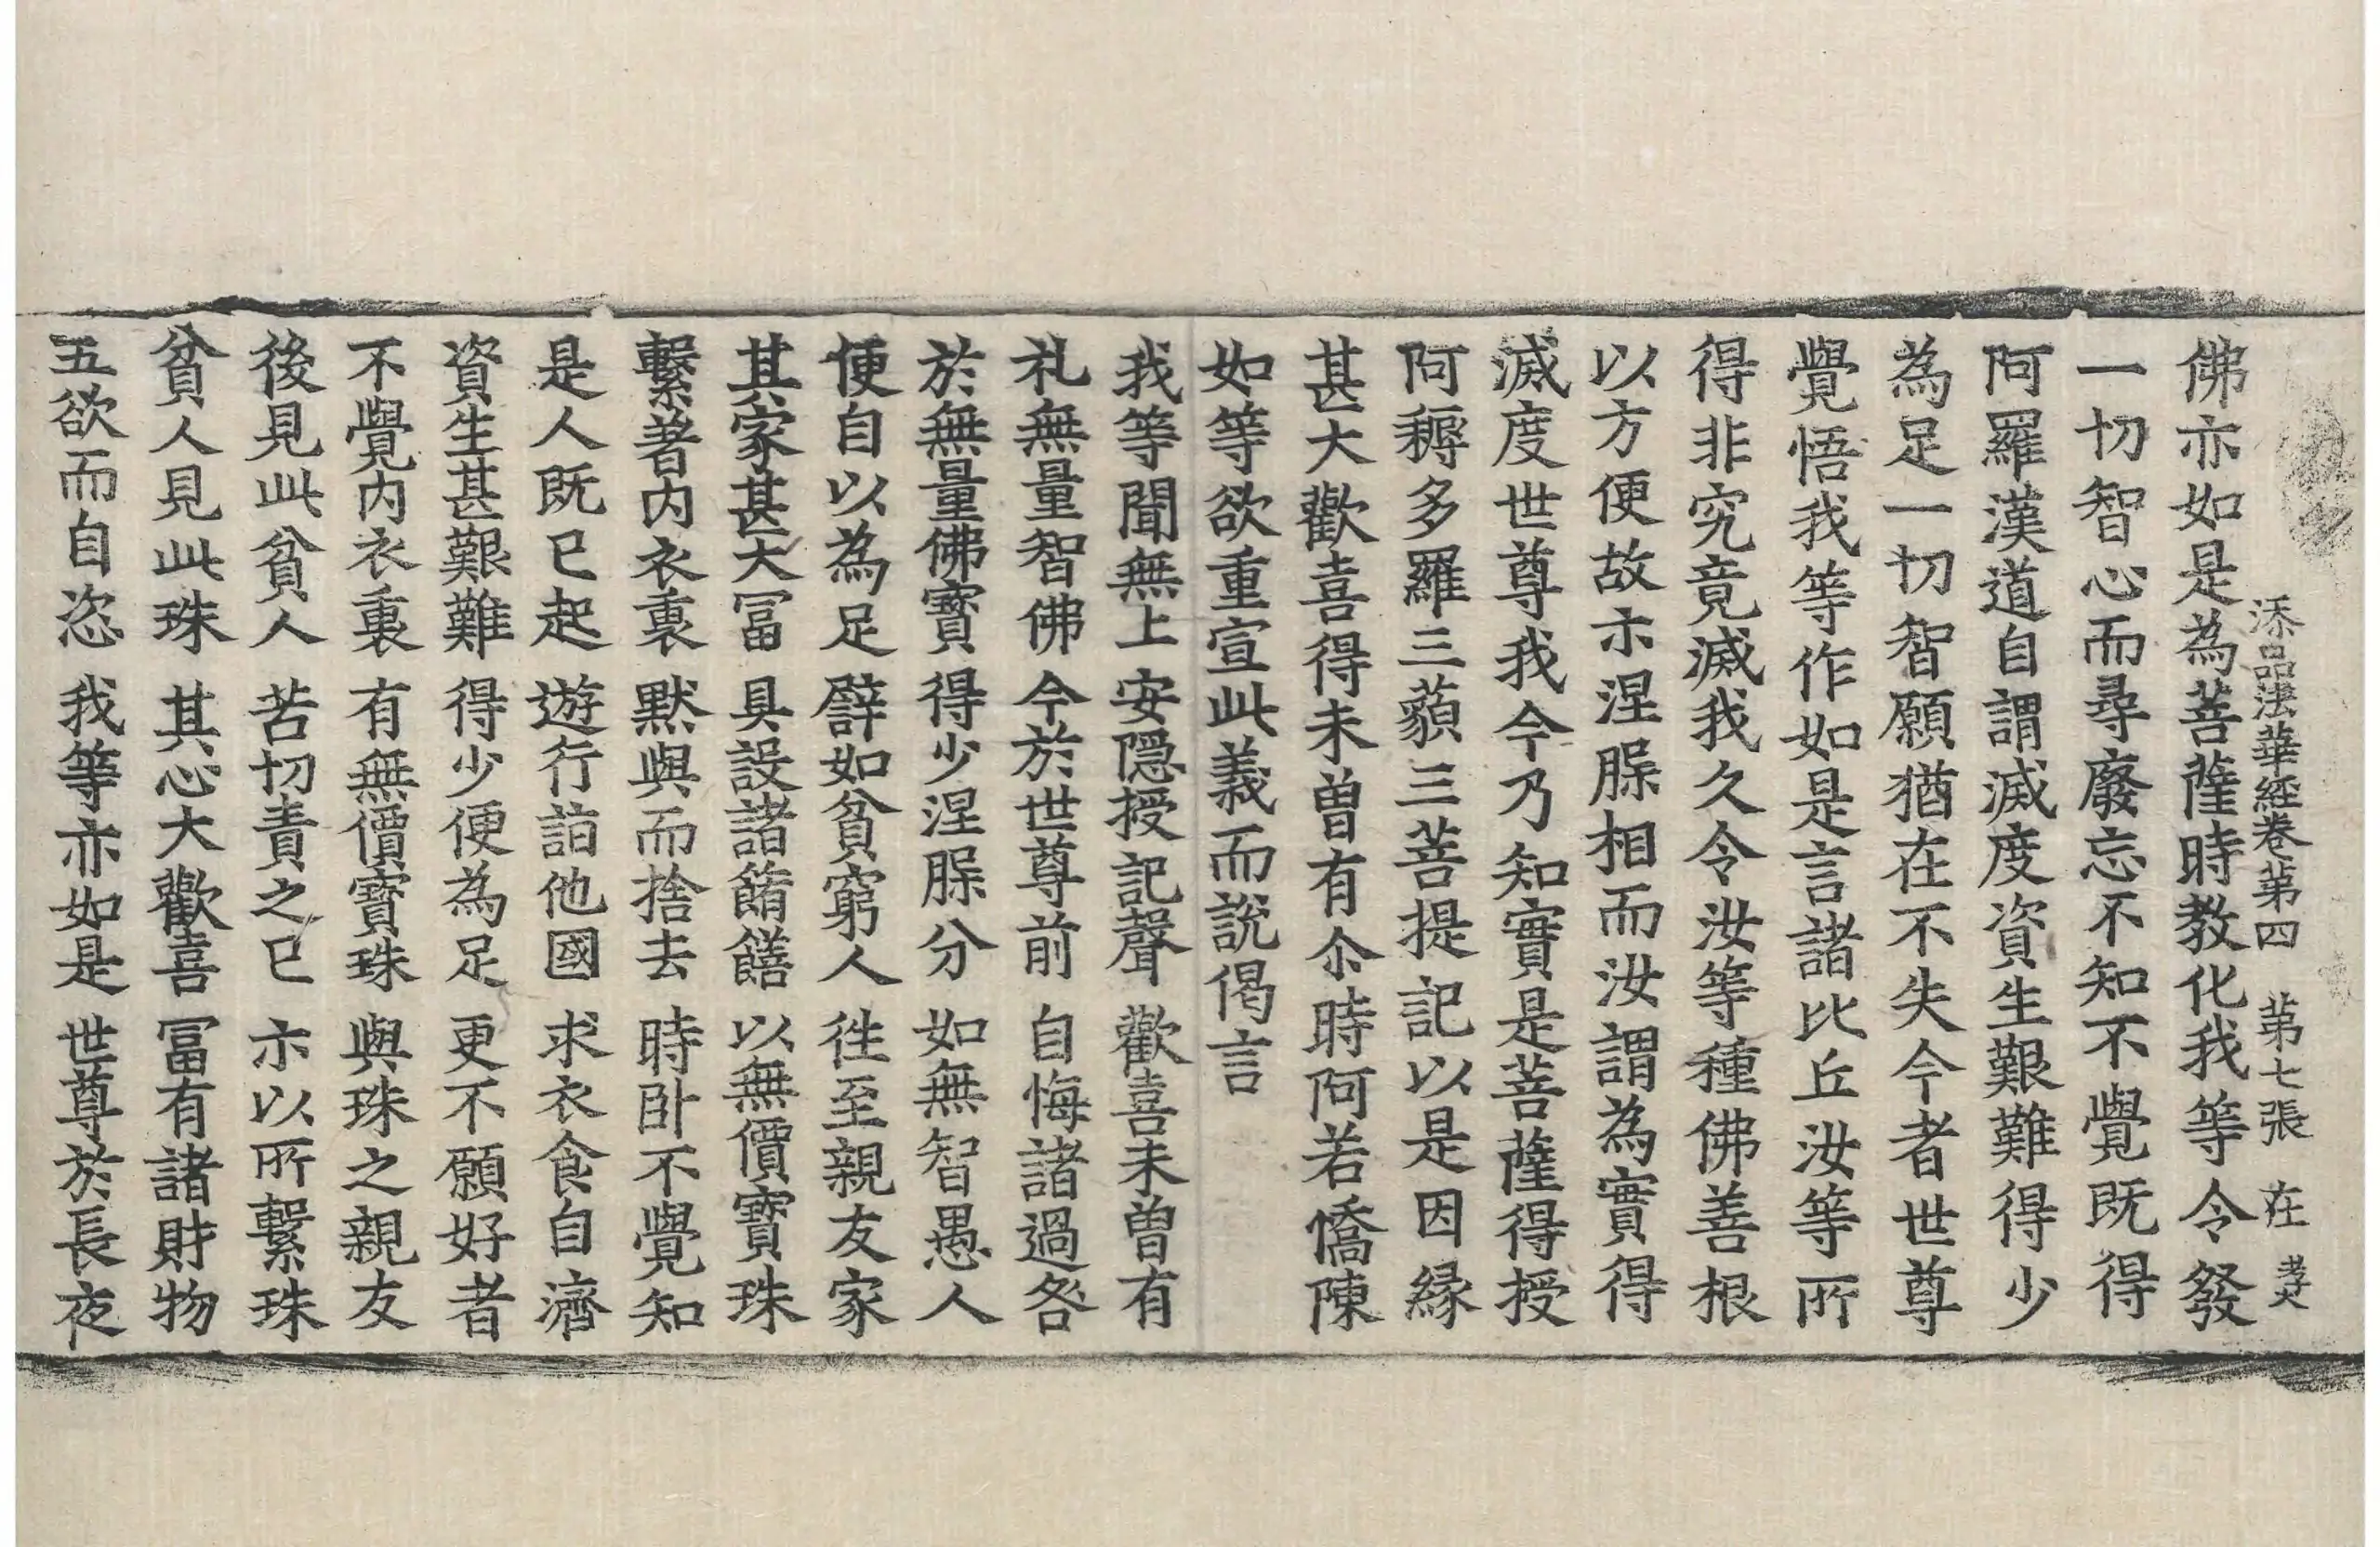 添品法華経卷苐四 苐七張 在
佛亦如是為菩薩時教化我等令發
一切智心而尋廢忘不知不覺既得
阿羅漢道自謂滅度資生艱難得少
為足一切智願猶在不失今者世尊
覺悟我等作如是言諸比丘汝等所
得非究竟滅我久令汝等種佛善根
以方便故示涅槃相而汝謂為實得
滅度世尊我今乃知實是菩薩得授
阿耨多羅三藐三菩提記以是因緣
甚大歡喜得未曾有尒時阿若憍陳
如等欲重宣此義而說偈言
我等聞無上 安隱授記聲 歡喜未曾有
礼無量智佛 今於世尊前 自悔諸過咎
於無量佛寶 得少涅槃分 如無智愚人
便自以為足 譬如貧窮人 往至親友家
其家甚大冨 具設諸餚饍 以無價寶珠
繫著内衣裏 默與而捨去 時臥不覺知
是人既已起 遊行詣他國 求衣食自濟
資生甚艱難 得少便為足 更不願好者
不覺内衣裏 有無價寶珠 與珠之親友
後見此貧人 苦切責之已 示以所繫珠
貧人見此珠 其心大歡喜 冨有諸財物
五欲而自恣 我等亦如是 世尊於長夜